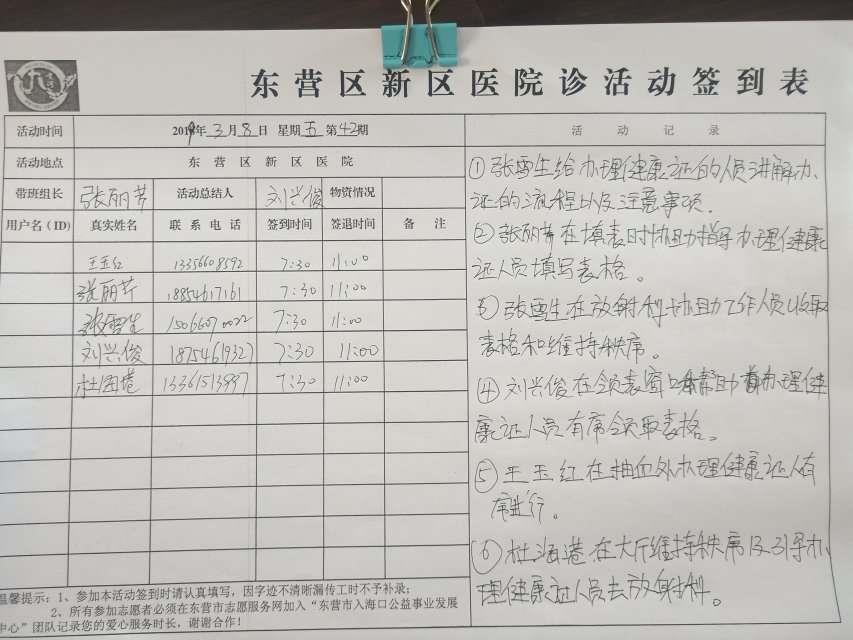 东营区新区医院诊活动签到表
活动时间 2019年3月8日 星期五 第42期 活动记录
活动地点 东营区新区医院
带班组长 张丽芹 活动总结人 刘兴俊 物资情况
用户名(ID) 真实姓名 联系电话 签到时间 签退时间 备注
王玉红 13356608592 7:30 11:00
张丽芹 18854617161 7:30 11:00
张雪生 7:30 11:00
刘兴俊 18754619327 7:30 11:00
7:30 11:00
①张雪生给办理健康证的人员讲解办
证的流程以及注意事项.
②张丽芹在填表时协助指导办理健康
证人员填写表格。
③张雪生在放射科协助工作人员收取
表格和维持秩序。
④刘兴俊在领表窗口帮助办理健
康证人员有序领取表格。
⑤王玉红在抽血处办理健康证人有
序进行。
⑥杜海港在大厅维持秩序及引导办
理健康证人员去放射科。
温馨提示:1、参加本活动签到时请认真填写,因字迹不清晰漏传工时不予补录;
2、所有参加志愿者必须在东营市志愿服务网加入“东营市入海口公益事业发展
中心”团队记录您的爱心服务时长,谢谢合作!